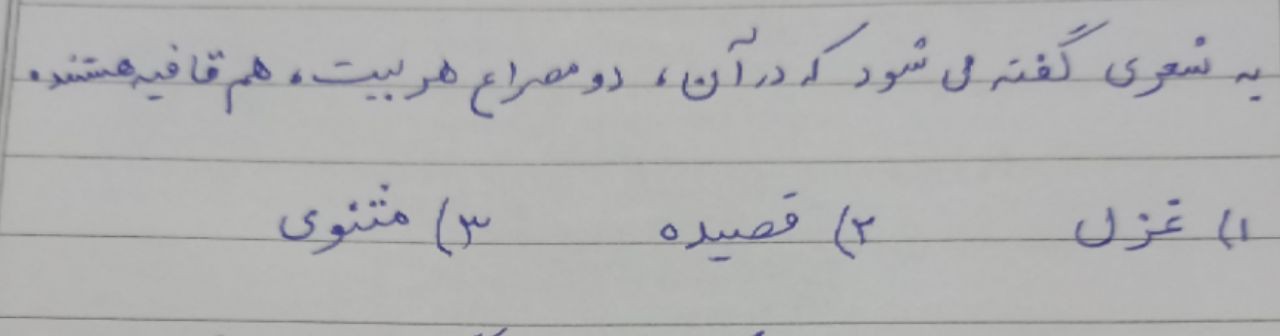 به شعری گفته می شود که در آن، دو مصراع هر بیت، هم قافیه هستند.
۱) غزل ۲) قصیده ۳) مثنوی